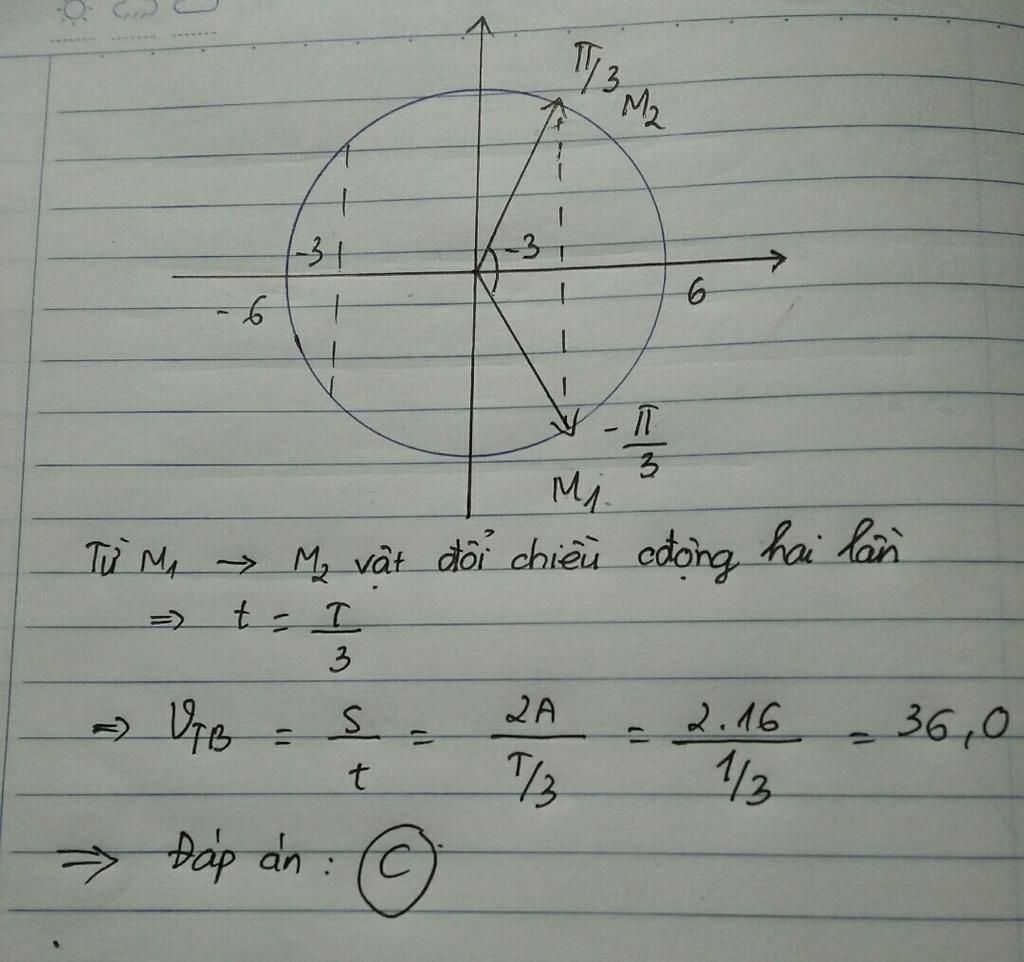 π/3
M2
-3
-3
-6
6
-π/3
M1
Từ M1 → M2 vật đổi chiều cđộng hai lần
=> t = T/3
=> VTB = S/t = 2A/T/3 = 2.16/1/3 = 36,0
=> Đáp án : C